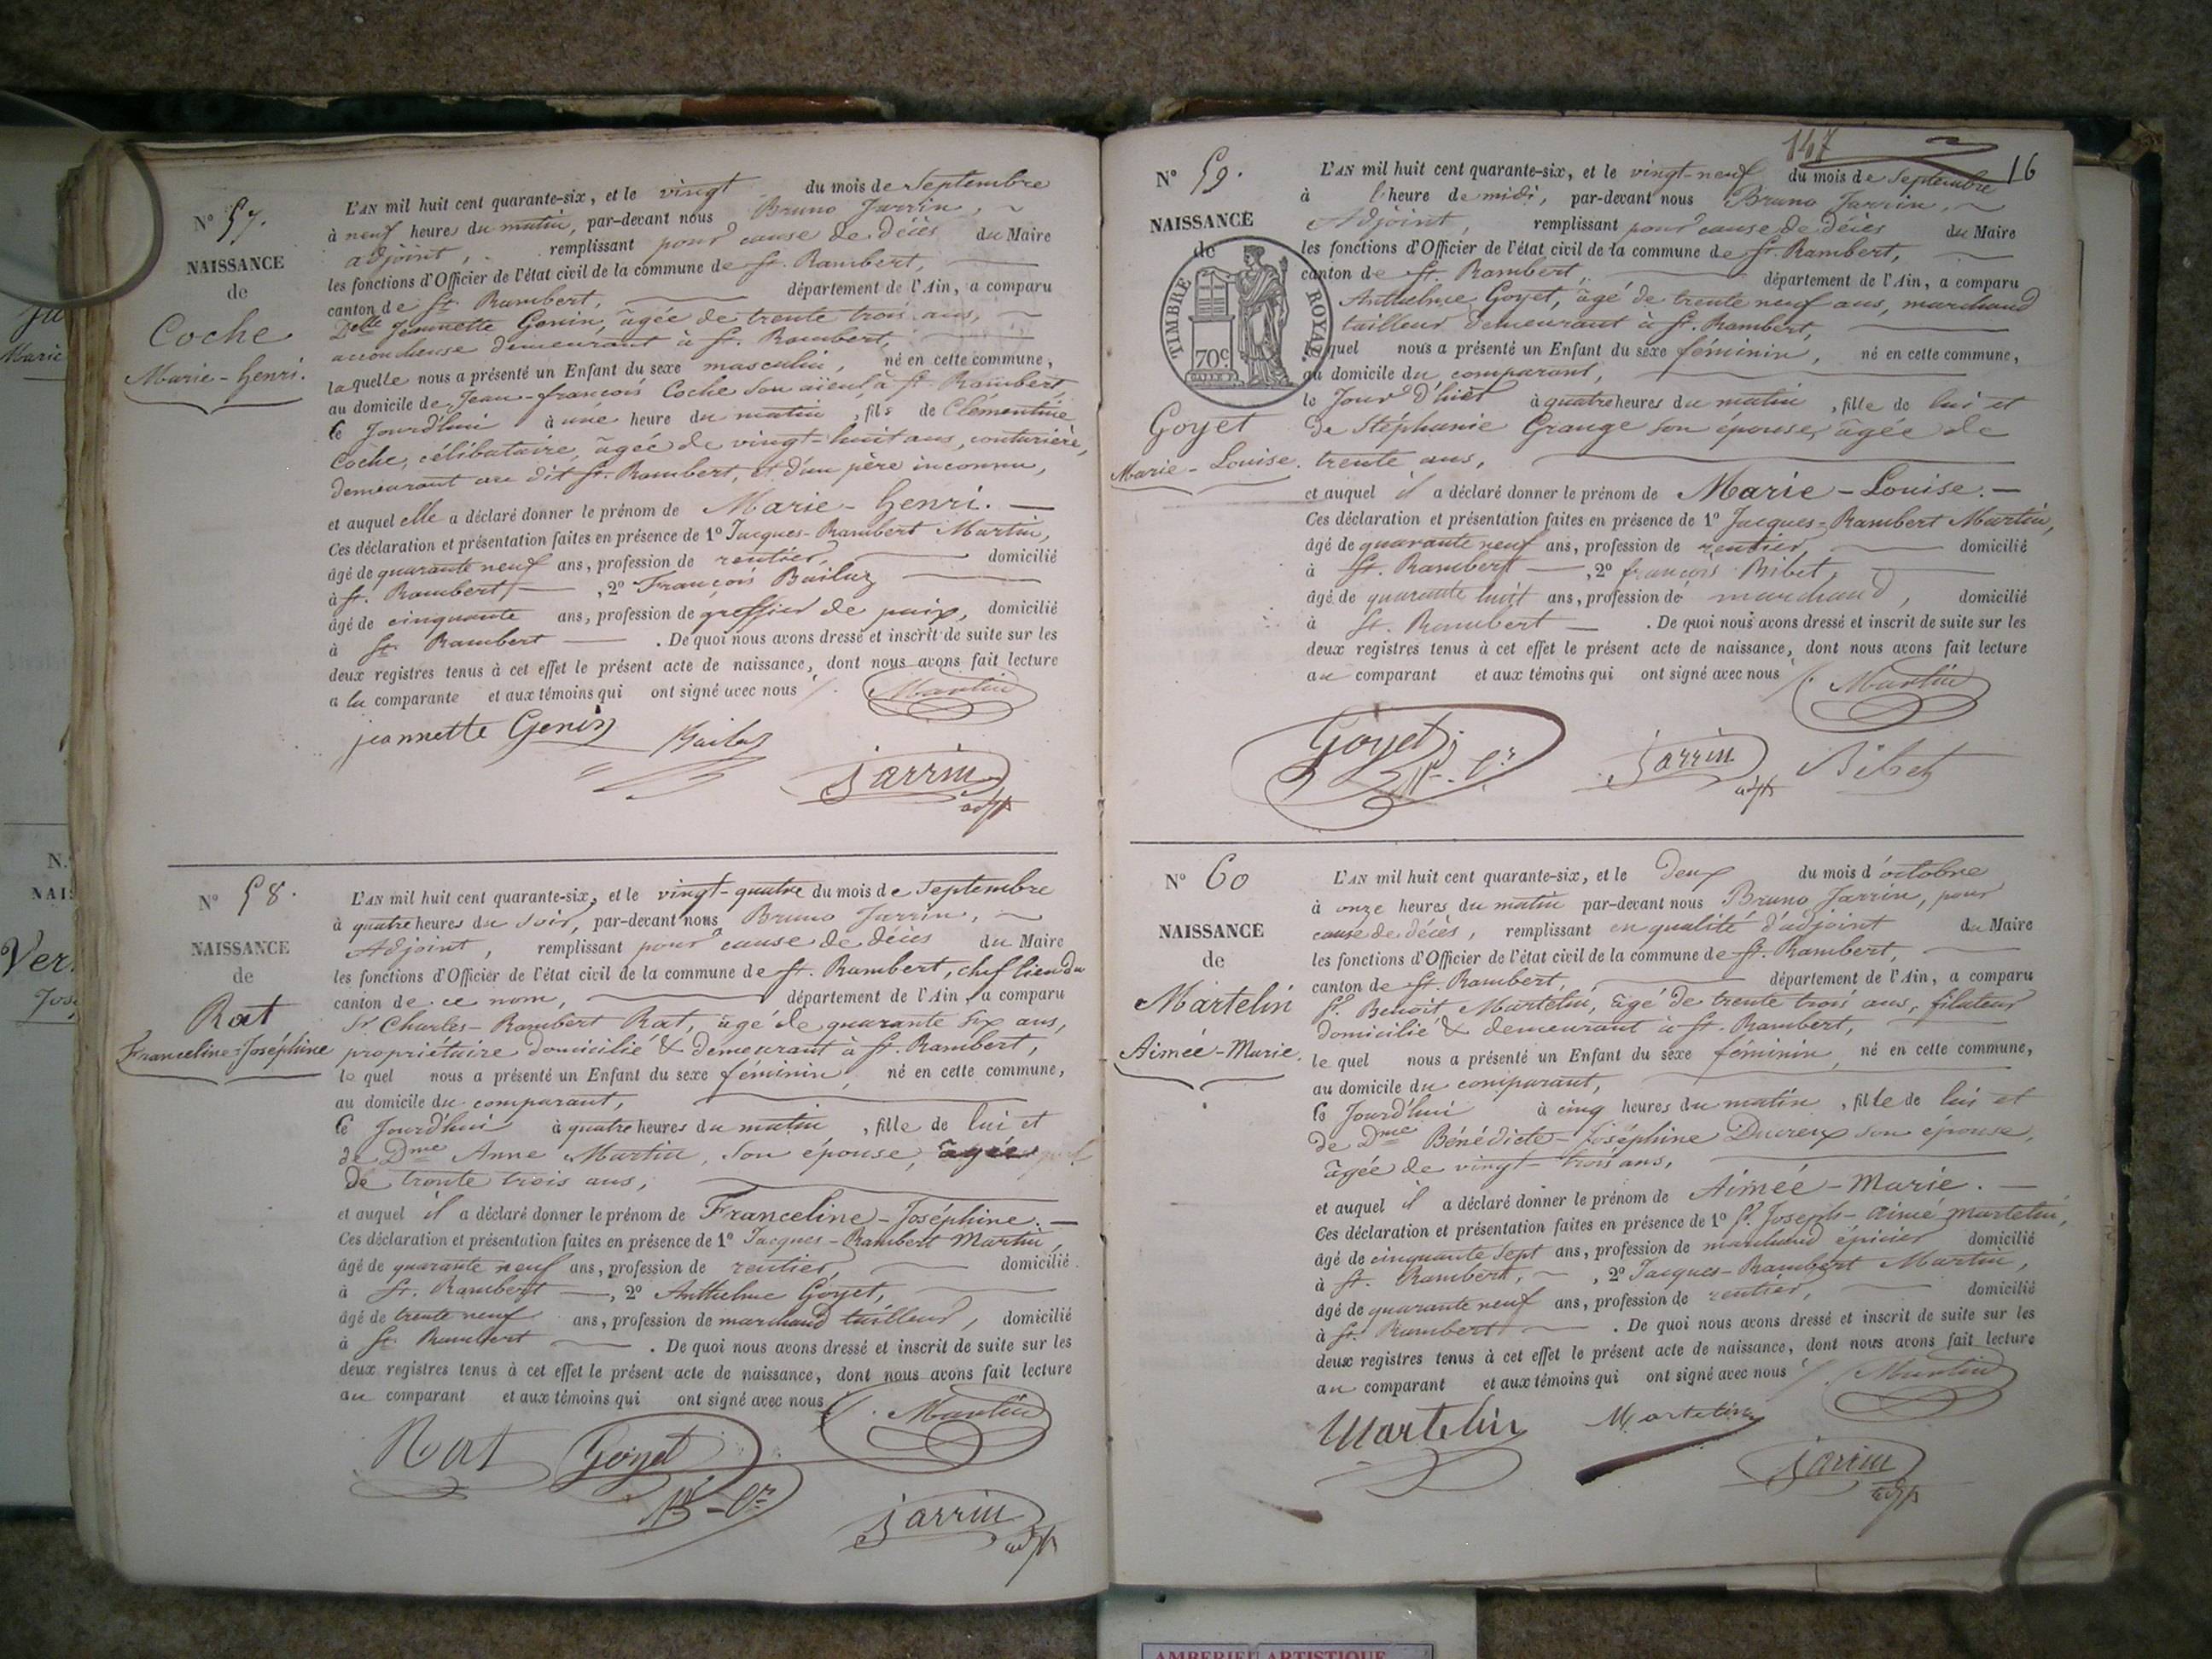 N° 57.
NAISSANCE
de
Coche
Marie-henri.
L'AN mil huit cent quarante-six, et le vingt du mois de Septembre
à neuf heures du matin, par-devant nous Bruno Jarrin,
adjoint, remplissant pour cause de décès du Maire
les fonctions d'Officier de l'état civil de la commune de St. Rambert,
canton de St. Rambert, département de l'Ain, a comparu
Delle Jeannette Genin, âgée de trente trois ans,
accoucheuse demeurant à St. Rambert,
laquelle nous a présenté un Enfant du sexe masculin, né en cette commune,
au domicile de Jean-françois Coche son aïeul à St. Rambert
le Jourd'hui à une heure du matin, fils de Clémentine
Coche, célibataire, âgée de vingt-huit ans, couturière,
demeurant au dit St. Rambert, et d'un père inconnu,
et auquel elle a déclaré donner le prénom de Marie-henri.
Ces déclaration et présentation faites en présence de 1° Jacques-Rambert Martin,
âgé de quarante neuf ans, profession de rentier, domicilié
à St. Rambert, 2° François Bailuz
âgé de cinquante ans, profession de greffier de paix, domicilié
à St. Rambert . De quoi nous avons dressé et inscrit de suite sur les
deux registres tenus à cet effet le présent acte de naissance, dont nous avons fait lecture
a la comparante et aux témoins qui ont signé avec nous
Martin
jeannette Genin
Jarrin
adjt
N° 58.
NAISSANCE
de
Rat
Franceline-Joséphine
L'AN mil huit cent quarante-six, et le vingt-quatre du mois de Septembre
à quatre heures du soir, par-devant nous Bruno Jarrin,
Adjoint, remplissant pour cause de décès du Maire
les fonctions d'Officier de l'état civil de la commune de St. Rambert, chef lieu du
canton de ce nom, département de l'Ain, a comparu
Sr Charles-Rambert Rat, âgé de quarante six ans,
propriétaire domicilié & demeurant à St. Rambert,
le quel nous a présenté un Enfant du sexe féminin, né en cette commune,
au domicile du comparant,
le Jourd'hui à quatre heures du matin, fille de lui et
de Dme Anne Martin, son épouse, âgée
de trente trois ans,
et auquel il a déclaré donner le prénom de Franceline-Joséphine.
Ces déclaration et présentation faites en présence de 1° Jacques-Rambert Martin
âgé de quarante neuf ans, profession de rentier, domicilié
à St. Rambert, 2° Anthelme Goyet,
âgé de trente neuf ans, profession de marchand tailleur, domicilié
à St. Rambert . De quoi nous avons dressé et inscrit de suite sur les
deux registres tenus à cet effet le présent acte de naissance, dont nous avons fait lecture
au comparant et aux témoins qui ont signé avec nous
Martin
Rat Goyet
Jarrin
adjt
147
16
N° 59.
NAISSANCE
de
TIMBRE ROYAL.
70c
Goyet
Marie-Louise.
L'AN mil huit cent quarante-six, et le vingt-neuf du mois de Septembre
à l'heure de midi, par-devant nous Bruno Jarrin,
Adjoint, remplissant pour cause de décès du Maire
les fonctions d'Officier de l'état civil de la commune de St. Rambert,
canton de St. Rambert, département de l'Ain, a comparu
Anthelme Goyet, âgé de trente neuf ans, marchand
tailleur demeurant à St. Rambert,
lequel nous a présenté un Enfant du sexe féminin, né en cette commune,
au domicile du comparant,
le Jour d'hier à quatre heures du matin, fille de lui et
de Stéphanie Grange son épouse, âgée de
trente ans,
et auquel il a déclaré donner le prénom de Marie-Louise.
Ces déclaration et présentation faites en présence de 1° Jacques-Rambert Martin,
âgé de quarante neuf ans, profession de rentier, domicilié
à St. Rambert, 2° françois Bibet,
âgé de quarante huit ans, profession de marchand, domicilié
à St. Rambert . De quoi nous avons dressé et inscrit de suite sur les
deux registres tenus à cet effet le présent acte de naissance, dont nous avons fait lecture
au comparant et aux témoins qui ont signé avec nous
Martin
Goyet Jarrin Bibet
adjt
N° 60
NAISSANCE
de
Martelin
Aimée-Marie.
L'AN mil huit cent quarante-six, et le deux du mois d'octobre
à onze heures du matin par-devant nous Bruno Jarrin, pour
cause de décès, remplissant en qualité d'adjoint du Maire
les fonctions d'Officier de l'état civil de la commune de St. Rambert,
canton de St. Rambert, département de l'Ain, a comparu
Sr. Benoit Martelin, âgé de trente trois ans, filateur
domicilié & demeurant à St. Rambert,
le quel nous a présenté un Enfant du sexe féminin, né en cette commune,
au domicile du comparant,
le Jourd'hui à cinq heures du matin, fille de lui et
de Dme Bénédicte-Joséphine Ducreux son épouse,
âgée de vingt-trois ans,
et auquel il a déclaré donner le prénom de Aimée-Marie.
Ces déclaration et présentation faites en présence de 1° Sr. Joseph-Aimé Martelin,
âgé de cinquante sept ans, profession de marchand épicier domicilié
à St. Rambert, 2° Jacques-Rambert Martin,
âgé de quarante neuf ans, profession de rentier, domicilié
à St. Rambert . De quoi nous avons dressé et inscrit de suite sur les
deux registres tenus à cet effet le présent acte de naissance, dont nous avons fait lecture
au comparant et aux témoins qui ont signé avec nous
Martin
Martelin Martelin
Jarrin
adjt
AMBERIEU ARTISTIQUE